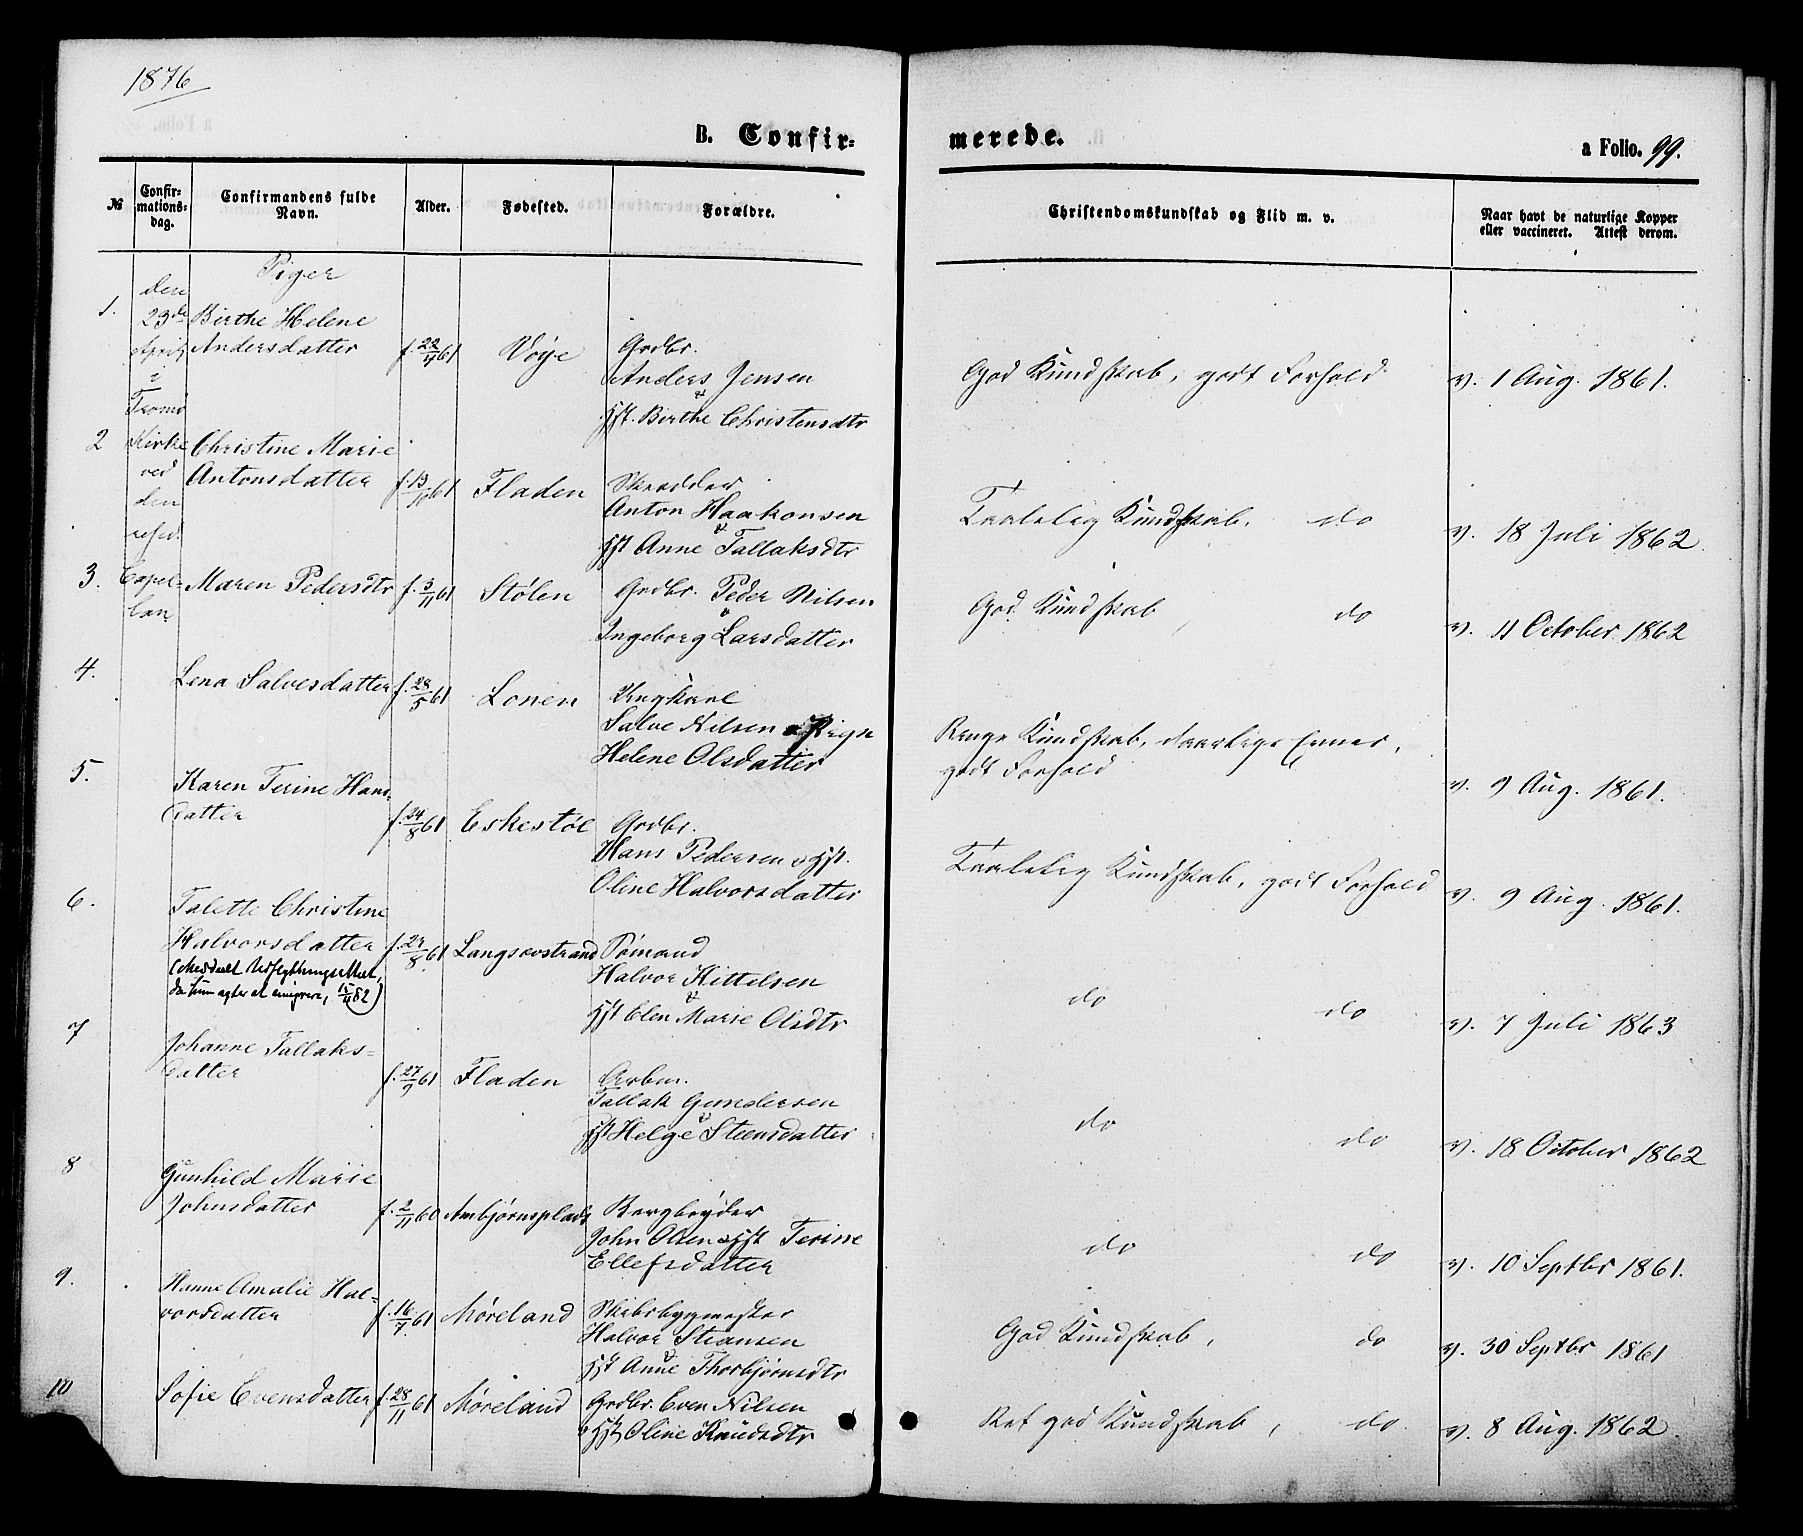 1876
B. Confir-
merede.
a Folio. 99.
№
Confir-
mations-
dag.
Confirmandens fulde
Navn.
Alder.
Fødested.
Forældre.
Christendomskundskab og Flid m. v.
Naar havt de naturlige Kopper
eller vaccineret. Attest derom.
Piger
den
23de
April
i
Tromø
Kirke
ved
den
resid.
Capel-
lan
1. Birthe Helene
Andersdatter f. 22/4 61 Vøye Grdbr.
Anders Jensen
&
Hst. Birthe Christensdtr
God Kundskab, godt Forhold v. 1 Aug. 1861.
2 Christine Marie
Antonsdatter f. 13/10 61 Fladen Skrædder
Anton Haakonsen
&
Hst Anne Tallaksdtr
Taalelig Kundskab, do v. 18 Juli 1862.
3. Maren Pedersdtr f. 3/11 61 Stølen Grdbr. Peder Nilsen
&
Ingeborg Larsdatter
God Kundskab, do v. 11 October 1862
4. Lena Salvesdatter f. 28/5 61 Lonen Ungkarl
Salve Nilsen & Pige
Helene Olsdatter
Ringe Kundskab, daarlige Evner,
godt Forhold v. 9 Aug. 1861.
5. Karen Terine Hans-
datter f. 24/8 61 Eskestøl Grdbr.
Hans Pedersen & Hst.
Oline Halvorsdatter
Taalelig Kundskab, godt Forhold v. 9 Aug. 1861.
6. Talette Christine
Halvorsdatter f. 29/8 61 Langsævstrand Sømand
(Meddelt Udflytningsattest,
da hun agter at emigrere, 15/4 82)
Halvor Kittelsen
&
Hst Elen Marie Olsdtr
do do v. 7 Juli 1863
7 Johanne Tallaks-
datter f. 27/9 61 Fladen Arbm.
Tallak Gundersen
&
Hst Helge Steensdatter
do do v. 18 October 1862
8 Gunhild Marie
Johnsdatter f. 2/11 60 Ambjørnsplads Bergbryder
John Olsen & Hst Terine
Ellefsdatter
do do v. 10 Septbr 1861.
9. Hanne Amalie Hal-
vorsdatter f. 16/7 61 Møreland Skibsbygmester
Halvor Steansen
&
Hst Anne Thorbjørnsdtr
God Kundskab, do v. 30 Septbr 1861
10 Sofie Evensdatter f. 28/11 61 Møreland Grdbr. Even Nilsen
& Hst Oline Knudsdtr
Ret god Kundskab, do. v. 8 Aug. 1862.